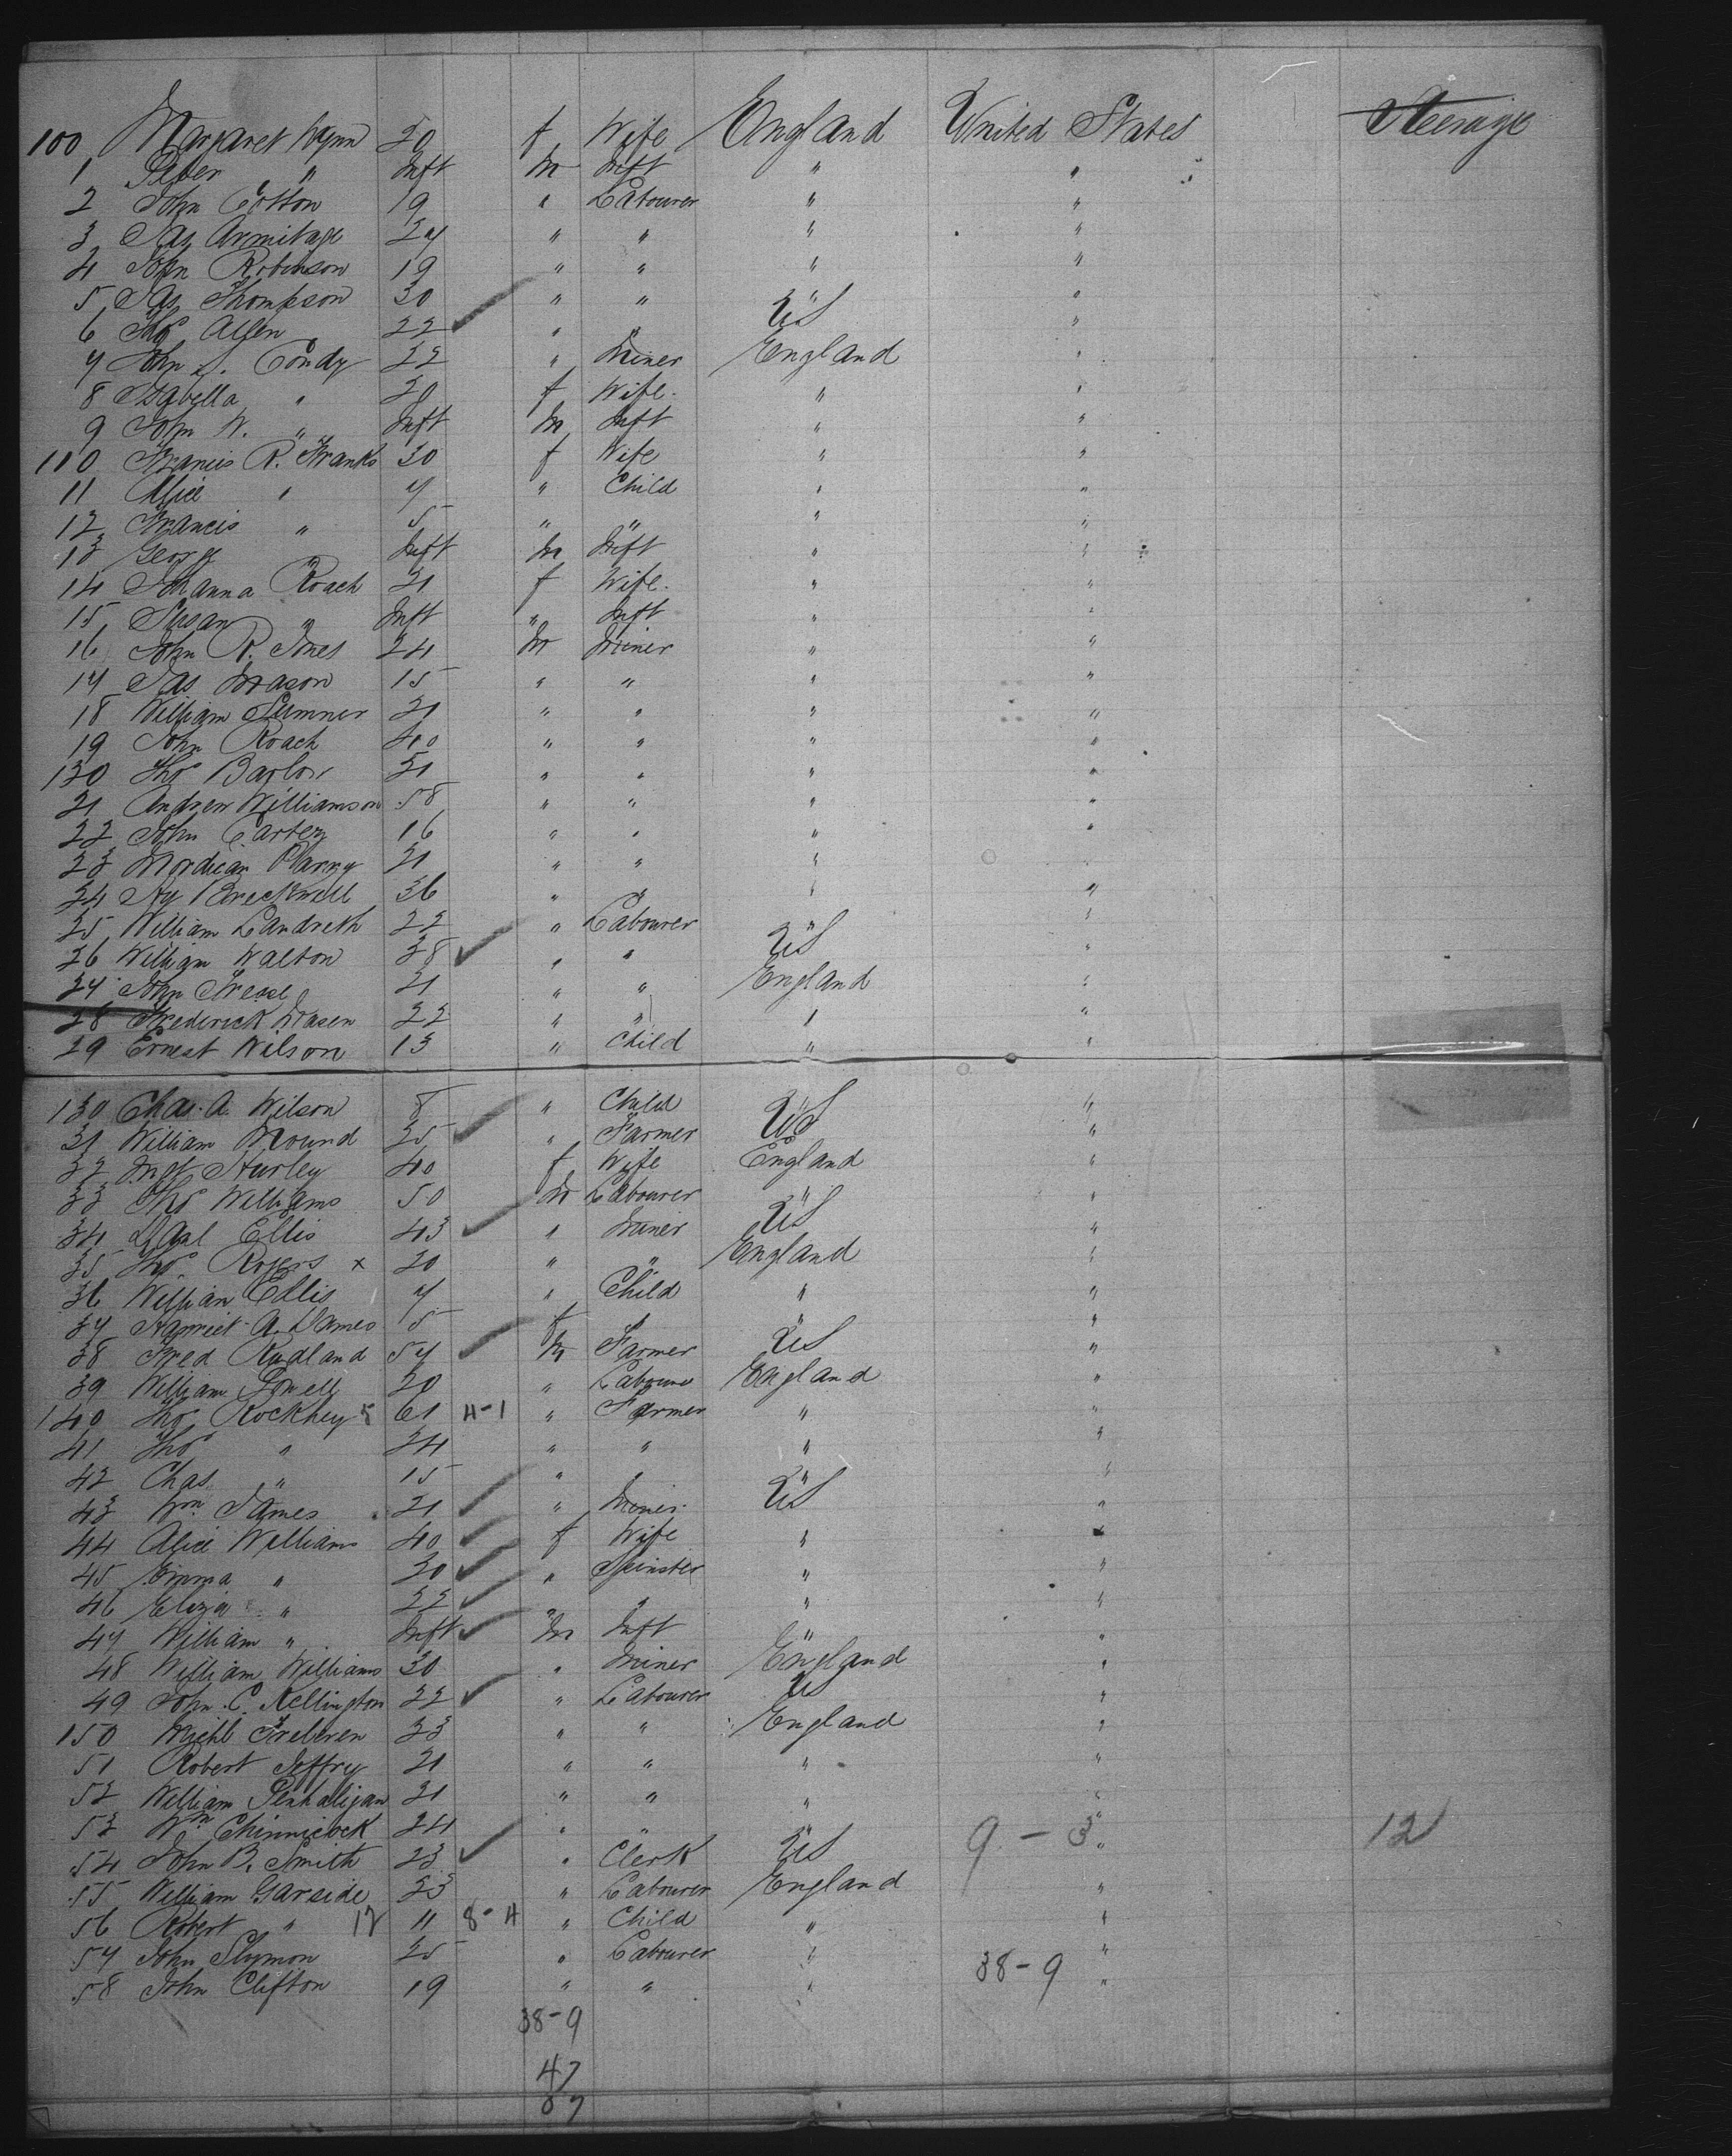 100 Margaret Wynn 20 f Wife England United States Steerage
1 Peter " Inft m Inft " "
2 John Cotton 19 " Labourer " "
3 Jas Armitage 27 " " " "
4 John Robinson 19 " " " "
5 Jas Thompson 30 " " " "
6 Thos Allen 22 " " US "
7 John J. Condy 22 " Miner England "
8 Isabella " 20 f Wife " "
9 John W. " Inft m Inft " "
110 Francis R. Franks 30 f Wife " "
11 Alice " 7 " Child " "
12 Francis " 5 " " " "
13 George " Inft m Inft " "
14 Johanna Roach 21 f Wife " "
15 Susan " Inft " Inft " "
16 John R. Jones 24 m Miner " "
17 Jas Mason 15 " " " "
18 William Sumner 21 " " " "
19 John Roach 40 " " " "
120 Thos Barlow 21 " " " "
21 Andrew Williamson 58 " " " "
22 John Carter 16 " " " "
23 Mordicai 21 " " " "
24 Hy Breckwell 36 " " " "
25 William Landreth 22 " Labourer " "
26 William Walton 28 " " US "
27 John 21 " " England "
28 Frederick Masen 22 " " " "
29 Ernest Wilson 13 " Child " "
130 Chas. A. Wilson 8 " Child " "
31 William Mound 25 " Farmer US "
32 Mgt Hurley 40 f Wife England "
33 Thos Williams 50 m Labourer " "
34 Danl Ellis 43 " Miner US "
35 Thos Rogers x 20 " " England "
36 William Ellis 7 " Child " "
37 Harriet A. James 5 f " " "
38 Fred Rudland 57 m Farmer US "
39 William Powell 20 " Labourer England "
140 Thos Rockhey 61 4-1 " Farmer " "
41 Thos " 24 " " " "
42 Chas " 15 " " " "
43 Wm. James 21 " Miner US "
44 Alice Williams 40 f Wife " "
45 Emma " 20 " Spinster " "
46 Eliza " 22 " " " "
47 William " Inft m Inft " "
48 William Williams 30 " Miner England "
49 John C. Kellington 22 " Labourer US "
150 Michl Treleven 23 " " England "
51 Robert Jeffry 21 " " " "
52 William Penhaligan 21 " " " "
53 Wm Chinnicock 24 " " " "
54 John B. Smith 23 " Clerk US 9 - 3 " 12
55 William Garside 23 " Labourer England "
56 Robert " 12 11 8-4 " Child " "
57 John Slymon 25 " Labourer " "
58 John Clifton 19 " " " 38-9 "
38-9
47